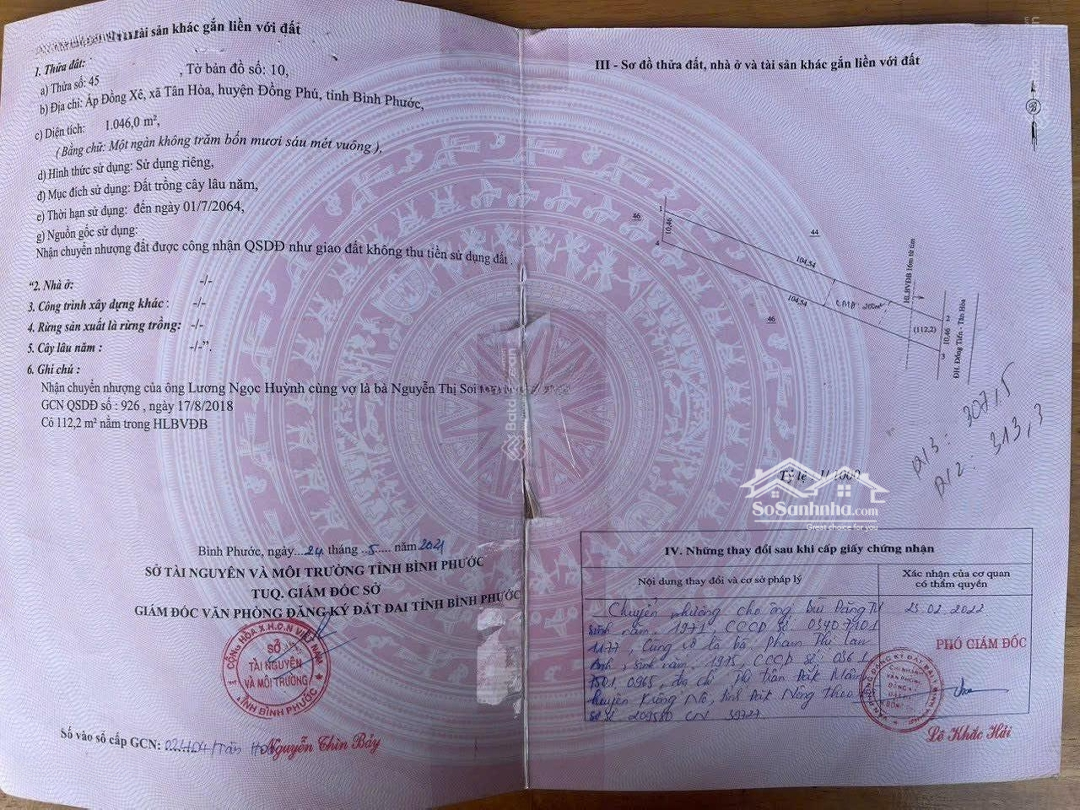 tài sản khác gắn liền với đất
1. Thửa đất:
a) Thửa số: 45 , Tờ bản đồ số: 10,
b) Địa chỉ: Ấp Đồng Xê, xã Tân Hòa, huyện Đồng Phú, tỉnh Bình Phước,
c) Diện tích: 1.046,0 m²,
( Bằng chữ: Một ngàn không trăm bốn mươi sáu mét vuông ),
d) Hình thức sử dụng: Sử dụng riêng,
đ) Mục đích sử dụng: Đất trồng cây lâu năm,
e) Thời hạn sử dụng: đến ngày 01/7/2064,
g) Nguồn gốc sử dụng:
Nhận chuyển nhượng đất được công nhận QSDĐ như giao đất không thu tiền sử dụng đất .
"2. Nhà ở: -/-
3. Công trình xây dựng khác : -/-
4. Rừng sản xuất là rừng trồng: -/-
5. Cây lâu năm : -/-".
6. Ghi chú :
Nhận chuyển nhượng của ông Lương Ngọc Huỳnh cùng vợ là bà Nguyễn Thị Soi
GCN QSDĐ số : 926 , ngày 17/8/2018
Có 112,2 m² nằm trong HLBVĐB
Bình Phước, ngày...24 tháng ..5.... năm 2021
SỞ TÀI NGUYÊN VÀ MÔI TRƯỜNG TỈNH BÌNH PHƯỚC
TUQ. GIÁM ĐỐC SỞ
GIÁM ĐỐC VĂN PHÒNG ĐĂNG KÝ ĐẤT ĐAI TỈNH BÌNH PHƯỚC
CỘNG HÒA X.H.C.N VIỆT NAM
SỞ
TÀI NGUYÊN
VÀ MÔI TRƯỜNG
TỈNH BÌNH PHƯỚC
Số vào sổ cấp GCN:
Nguyễn Thìn Bảy
III - Sơ đồ thửa đất, nhà ở và tài sản khác gắn liền với đất
46
1
10,46
4
44
104,54
104,54
46
HLBVĐB 16m từ tim
(112,2)
2
10,46
3
ĐH. Đồng Tiến - Tân Hòa
D13: 307,5
D12: 313,3
Tỷ lệ 1/1000
SoSanhnha.com
Great choice for you
Batdongsan
IV. Những thay đổi sau khi cấp giấy chứng nhận
Nội dung thay đổi và cơ sở pháp lý
Xác nhận của cơ quan
có thẩm quyền
Chuyển nhượng cho ông Bùi Đăng
sinh năm 1971, CCCD số 0340710
1177, Cùng vợ là bà Phạm Thị Lan
Anh, sinh năm 1975, CCCD số 0361
địa chỉ
huyện Krông Nô, tỉnh Đắk Nông Theo
25.02.2022
PHÓ GIÁM ĐỐC
Lê Khắc Hải